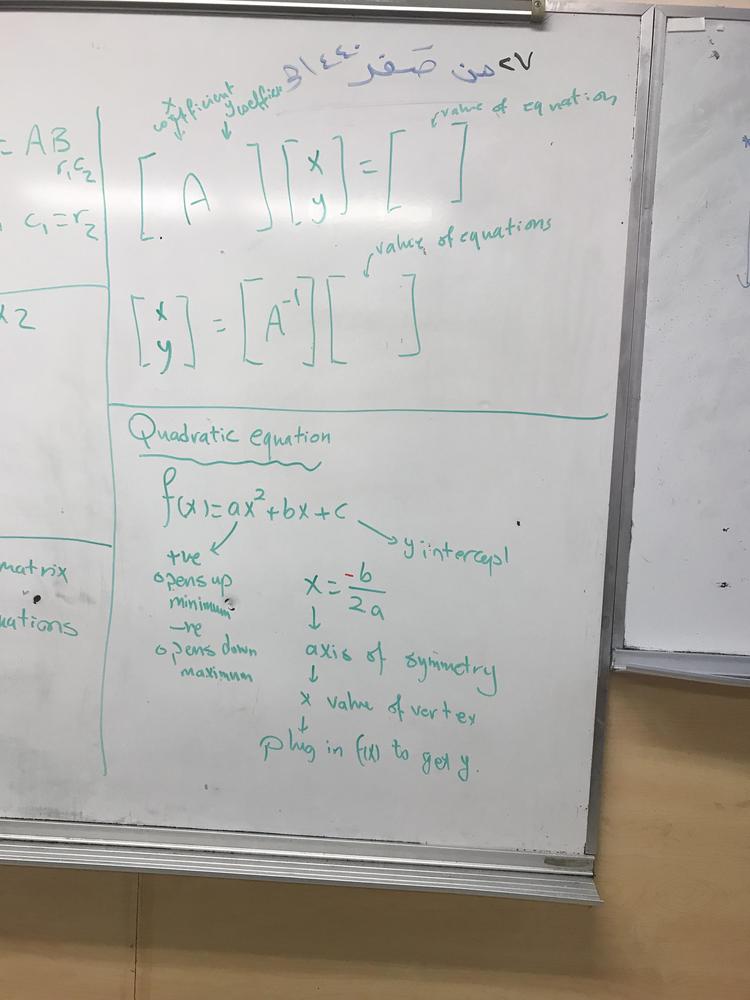 ٢٧ من صَفَر ١٤٤٠هـ
= AB
r₁c₂
c₁=r₂
x2
matrix
uations
x y
coefficient coefficien
value of equation
[ A ] [ x y ] = [ ]
value of equations
[ x y ] = [ A⁻¹ ] [ ]
Quadratic equation
f(x)=ax²+bx+c
y intercept
+ve
opens up
minimum
-ve
opens down
maximum
x = -b/2a
axis of symmetry
x value of vertex
plug in f(x) to get y.